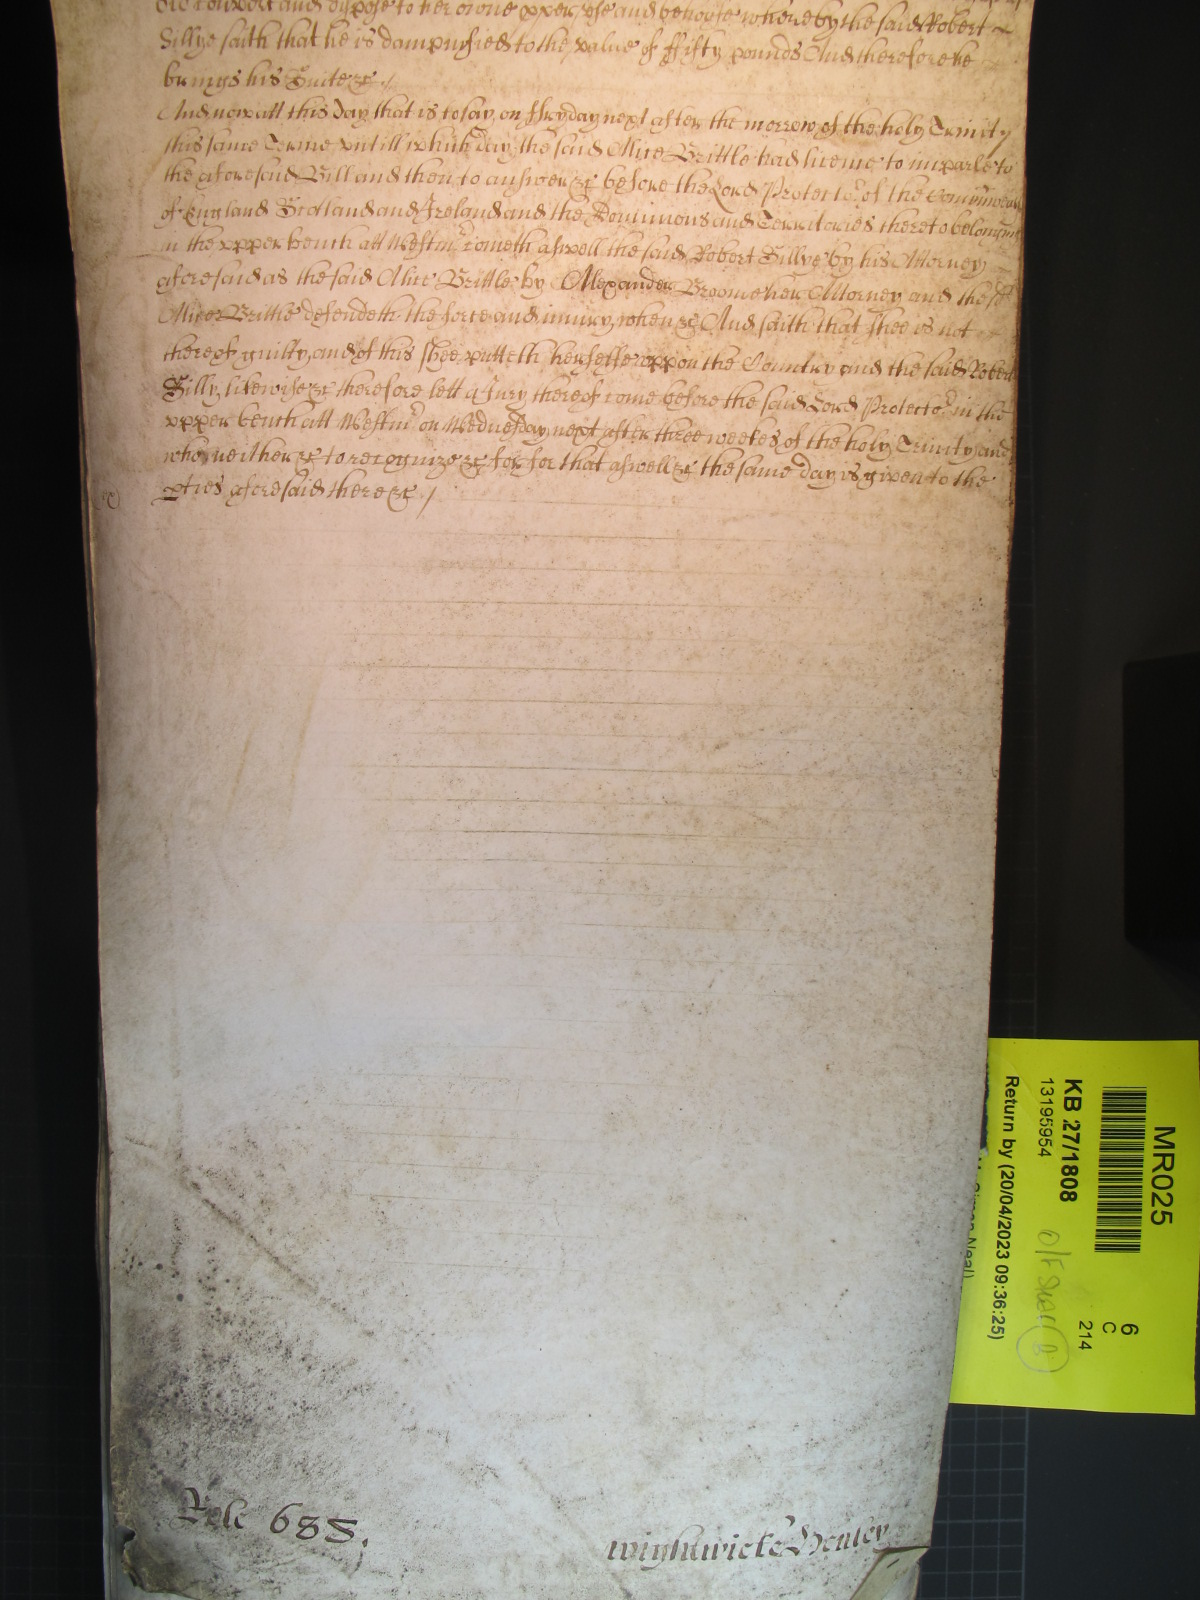 did convert and dispose to her owne pper vse and behoofe whereby the said Robert
Sillye saith that he is dampnified to the value of ffifty pounds And therefore he
brings his Suite &c /
And now att this day that is to say on ffryday next after the morrow of the holy Trinity
this same Terme vntill which day the said Alice Brittle had licence to imparle to
the aforesaid Bill and then to answer &c before the Lord Protector of the Comonwealth
of England Scotland and Ireland and the Dominions and Territories thereto belonging
in the vpper bench att Westmr cometh aswell the said Robert Sillye by his Attorney
aforesaid as the said Alice Brittle by Allexander Broome her Attorney and the sd
Alice Brittle defendeth the force and iniury when &c And saith that shee is not
thereof guilty and of this shee putteth herselfe vppon the Country and the said Robert
Silly likewise &c therefore lett a Jury thereof come before the said Lord Protector in the
vpper bench att Westmr on Wednesday next after three weekes of the holy Trinity and
who neither &c to recognize &c for that aswell &c the same day is given to the
pties aforesaid there &c /
Role 688.
Wightwicke Henley
MR025
KB 27/1808
13195954
Return by (20/04/2023 09:36:25)
6
C
214